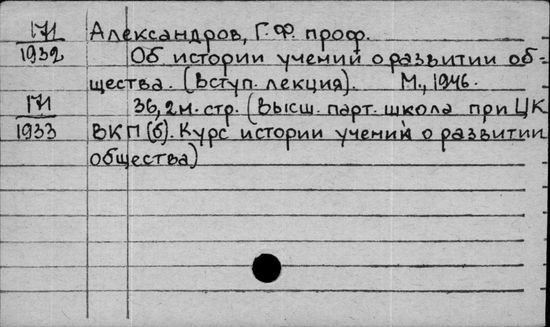 171 Александров, Г.Ф. проф.
1932 Об истории учений о развитии об-
щества. (Вступ. лекция). М., 1946.
171 36, 2н. стр. (Высш. парт. школа при ЦК
1933 ВКП(б). Курс истории учений о развитии
общества)